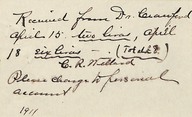 Received from Dr. Crawford
April 15. two lires, April
18 six lires —. (Total 8.)
C. R.
Please charge to personal
account
1911